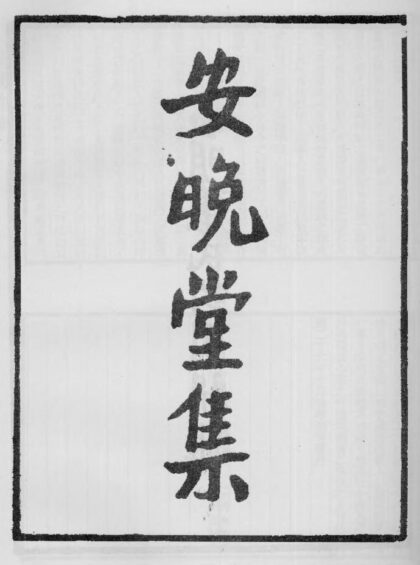 安晚堂集